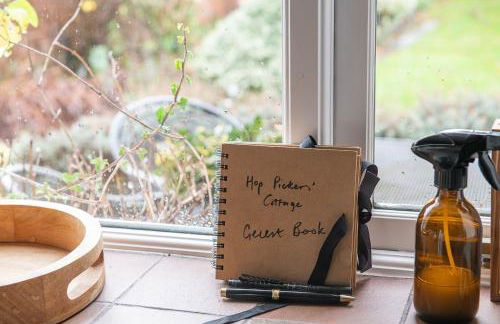 Hop Pickers'
Cottage
Guest Book